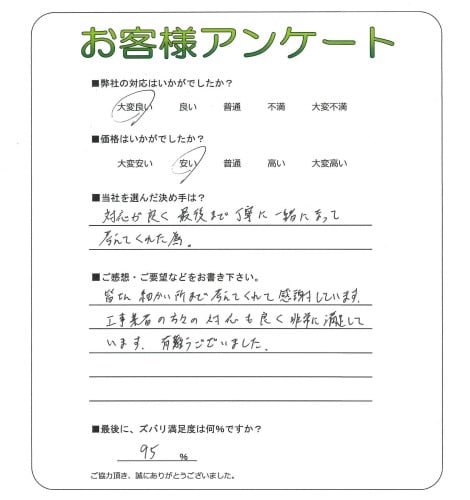 お客様アンケート
■弊社の対応はいかがでしたか?
大変良い 良い 普通 不満 大変不満
■価格はいかがでしたか?
大変安い 安い 普通 高い 大変高い
■当社を選んだ決め手は?
対応が良く最後まで丁寧に一緒になって
考えてくれた為。
■ご感想・ご要望などをお書き下さい。
皆さん細かい所まで考えてくれて感謝しています。
工事業者の方々の対応も良く非常に満足して
います。有難うございました。
■最後に、ズバリ満足度は何%ですか?
95 %
ご協力頂き、誠にありがとうございました。